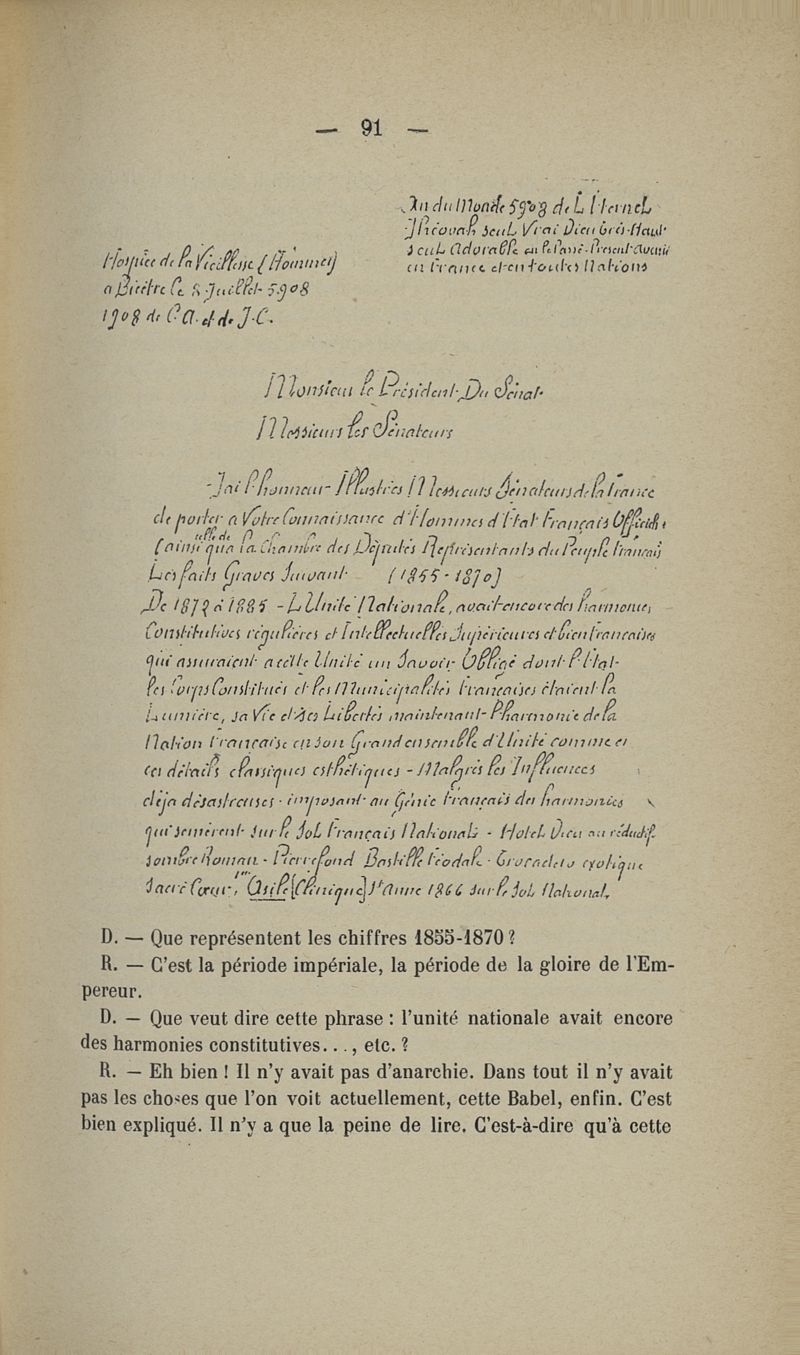 — 91 —
An du Monde 5908 de L'Eternel
Jhéovah Seul Vrai Dieu Très-Haut
Seul Adorable au Passé-Présent-Avenir
en France et en toutes Nations
Hospice de la Vieillesse (Hommes)
a Bicêtre Ce 8 Juillet 5908
1908 de J.C.
Monsieur le Président Du Sénat
Messieurs Les Sénateurs
J'ai l'honneur Illustres Messieurs Sénateurs de la France
de porter a Votre Connaissance d'Hommes d'Etat Français
(ainsi qu'a la Chambre des Députés Représentants du Peuple Français)
Les faits Graves Suivant (1855-1870)
De 1872 à 1885 - L'Unité Nationale, avait encore des harmonies
Constitutives régulières et Intellectuelles Supérieures et bien françaises
qui assuraient a cette Unité un Savoir Obligé dont l'Etat
les Corps Constitués et les Municipalités Françaises étaient la
Lumière, sa Vie et Ses Libertés maintenant l'harmonie de la
Nation Française en son Grand ensemble d'Unité comme en
ces détails classiques esthétiques - Malgrés les Influences
deja désastreuses - imposant au Génie Français des harmonies
qui semèrent sur le Sol Français National - Hotel Dieu
sombre Roman - Pierrefond Bastille féodale - Trocadero exotique
Sacré Cœur, Asile [Clinique] Ste Anne 1866 sur le Sol National,
D. — Que représentent les chiffres 1855-1870 ?
R. — C'est la période impériale, la période de la gloire de l'Em-
pereur.
D. — Que veut dire cette phrase : l'unité nationale avait encore
des harmonies constitutives..., etc. ?
R. — Eh bien ! Il n'y avait pas d'anarchie. Dans tout il n'y avait
pas les choses que l'on voit actuellement, cette Babel, enfin. C'est
bien expliqué. Il n'y a que la peine de lire. C'est-à-dire qu'à cette